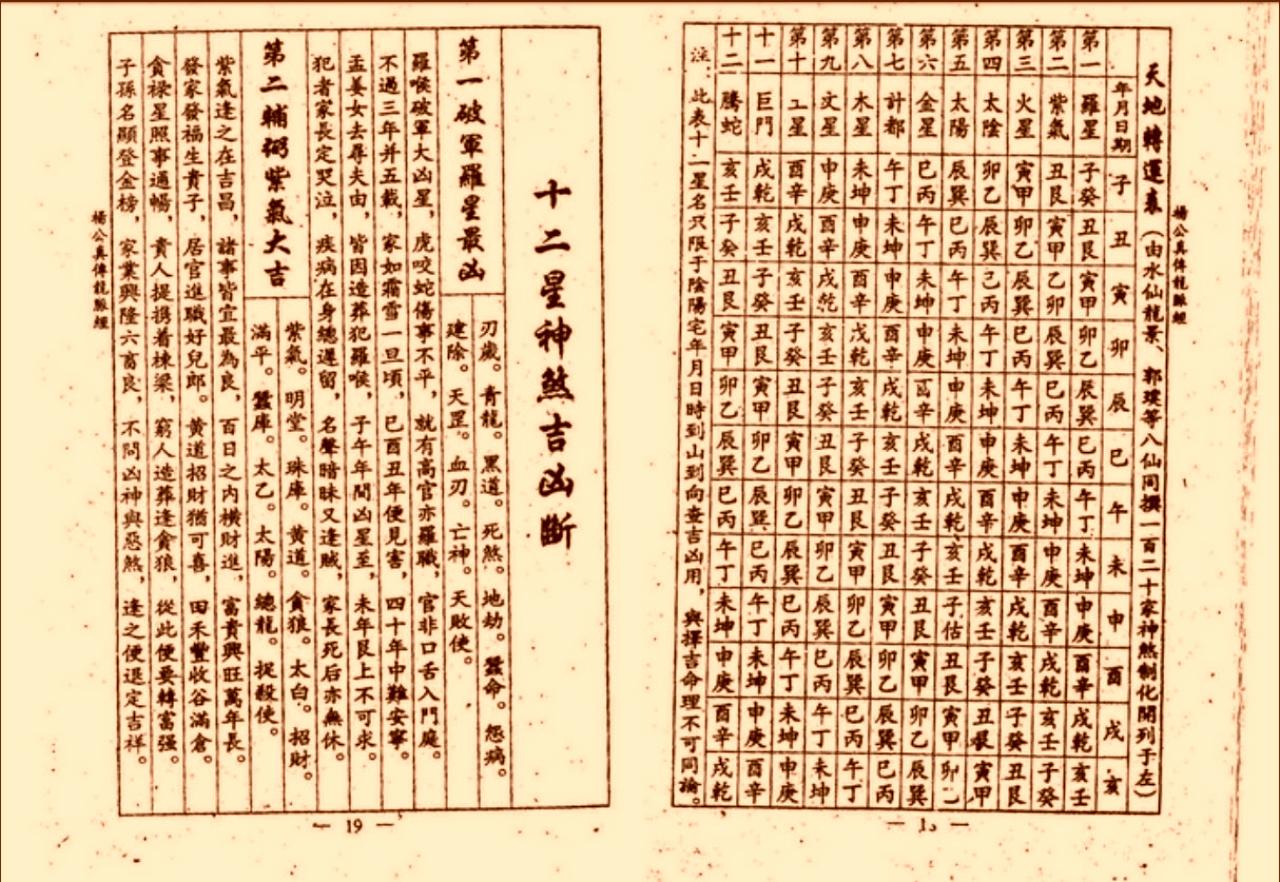 楊公真傳龍脈經
天地轉運表（由水仙龍景、郭璞等八仙同撰一百二十家神煞制化開列于左）
年月日期 子 丑 寅 卯 辰 巳 午 未 申 酉 戌 亥
第一 羅星 子癸 丑艮 寅甲 卯乙 辰巽 巳丙 午丁 未坤 申庚 酉辛 戌乾 亥壬
第二 紫氣 丑艮 寅甲 乙卯 辰巽 巳丙 午丁 未坤 申庚 酉辛 戌乾 亥壬 子癸
第三 火星 寅甲 卯乙 辰巽 巳丙 午丁 未坤 申庚 酉辛 戌乾 亥壬 子癸 丑艮
第四 太陰 卯乙 辰巽 己丙 午丁 未坤 申庚 酉辛 戌乾 亥壬 子癸 丑艮 寅甲
第五 太陽 辰巽 巳丙 午丁 未坤 申庚 酉辛 戌乾 亥壬 子估 丑艮 寅甲 卯
第六 金星 巳丙 午丁 未坤 申庚 辛 戌乾 亥壬 子癸 丑艮 寅甲 卯乙 辰巽
第七 計都 午丁 未坤 申庚 酉辛 戌乾 亥壬 子癸 丑艮 寅甲 卯乙 辰巽 巳丙
第八 木星 未坤 申庚 酉辛 戊乾 亥壬 子癸 丑艮 寅甲 卯乙 辰巽 巳丙 午丁
第九 文星 申庚 酉辛 戌乾 亥壬 子癸 丑艮 寅甲 卯乙 辰巽 巳丙 午丁 未坤
第十 工星 酉辛 戌乾 亥壬 子癸 丑艮 寅甲 卯乙 辰巽 巳丙 午丁 未坤 申庚
十一 巨門 戌乾 亥壬 子癸 丑艮 寅甲 卯乙 辰巽 巳丙 午丁 未坤 申庚 酉辛
十二 騰蛇 亥壬 子癸 丑艮 寅甲 卯乙 辰巽 巳丙 午丁 未坤 申庚 酉辛 戌乾
注：此表十二星名只限于陰陽宅年月日時到山到向查吉凶用，與擇吉命理不可同論。
十二星神煞吉凶斷
第一破軍羅星最凶
刃歲。青龍。黑道。死煞。地劫。蠶命。怨病。
建除。天罡。血刃。亡神。天敗使。
羅喉破軍大凶星，虎咬蛇傷事不平，就有高官亦羅職，官非口舌入門庭。
不過三年并五載，家如霜雪一旦頃，巳酉丑年便見害，四十年中難安寧。
孟姜女去尋夫由，皆因造葬犯羅喉，子午年間凶星至，未年艮上不可求。
犯者家長定哭泣，疾病在身總遲留，名聲暗昧又逢賊，家長死后亦無休。
第二輔弼紫氣大吉
紫氣。明堂。珠庫。黄道。貪狼。太白。招財。
滿平。蠶庫。太乙。太陽。總龍。捉殺使。
紫氣逢之在吉昌，諸事皆宜最為良，百日之内横財進，富貴興旺萬年長。
發家發福生貴子，居官進職好兒郎。黄道招財猶可喜，田禾豐收谷滿倉。
貪禄星照事通暢，貴人提携着棟梁，窮人造葬逢貪狼，從此便要轉富强。
子孫名顯登金榜，家業興隆六畜良，不問凶神與惡煞，逢之便退定吉祥。
楊公真傳龍脈經
— 19 —